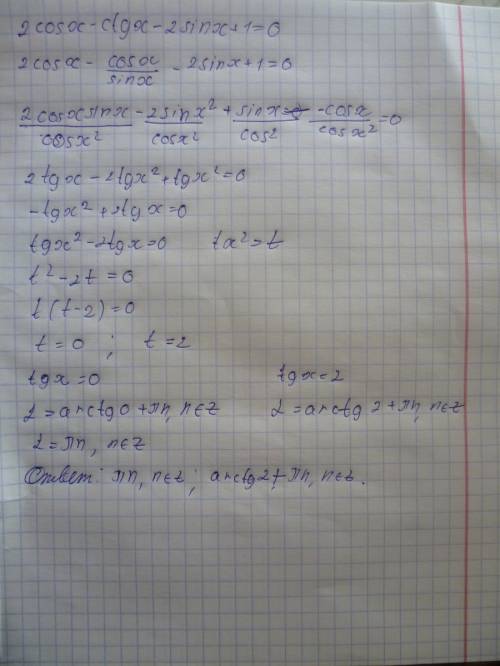 2cosx - ctgx - 2sinx + 1 = 0
2cosx - cosx/sinx - 2sinx + 1 = 0
2cosx sinx/cosx² - 2sinx²/cosx² + sinx/cos² - cosx/cosx² = 0
2tgx - 2tgx² + tgx² = 0
-tgx² + 2tgx = 0
tgx² - 2tgx = 0 tx² = t
t² - 2t = 0
t(t-2) = 0
t = 0 ; t = 2
tgx = 0 tgx = 2
2 = arctg0 + πn, n∈z 2 = arctg2 + πn, n∈z
2 = πn, n∈z
Ответ: πn, n∈z; arctg2 + πn, n∈z.